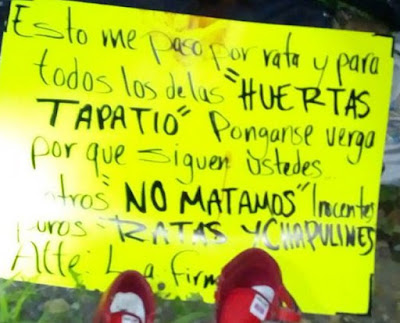 Esto me paso por rata y para
todos los delas "HUERTAS
TAPATIO" Ponganse verga
por que siguen ustedes
"NO MATAMOS" Inocentes
puros RATAS Y CHAPULINES
Atte: La firm